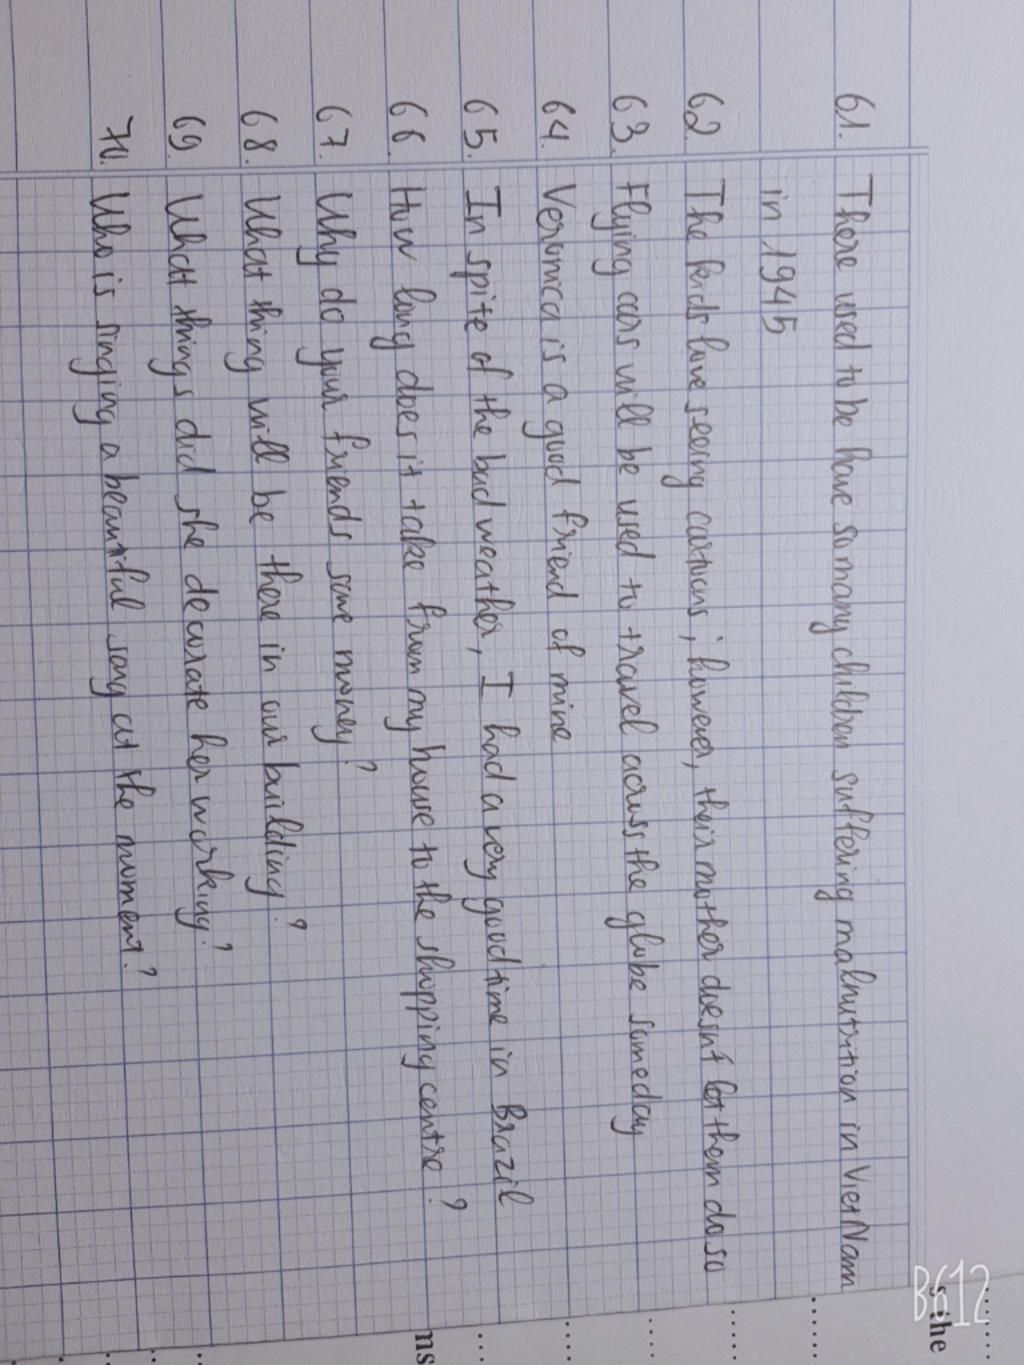 61. There used to be have so many children suffering malnutrition in Viet Nam
in 1945
62. The kids love seeing cartoons; however, their mother doesn't let them do so
63. Flying cars will be used to travel across the globe someday
64. Veronica is a good friend of mine
65. In spite of the bad weather, I had a very good time in Brazil
66. How long does it take from my house to the shopping centre?
67. Why do your friends save money?
68. What thing will be there in our building?
69. What things did she decorate her working?
70. Who is singing a beautiful song at the moment?
B612
the
ns